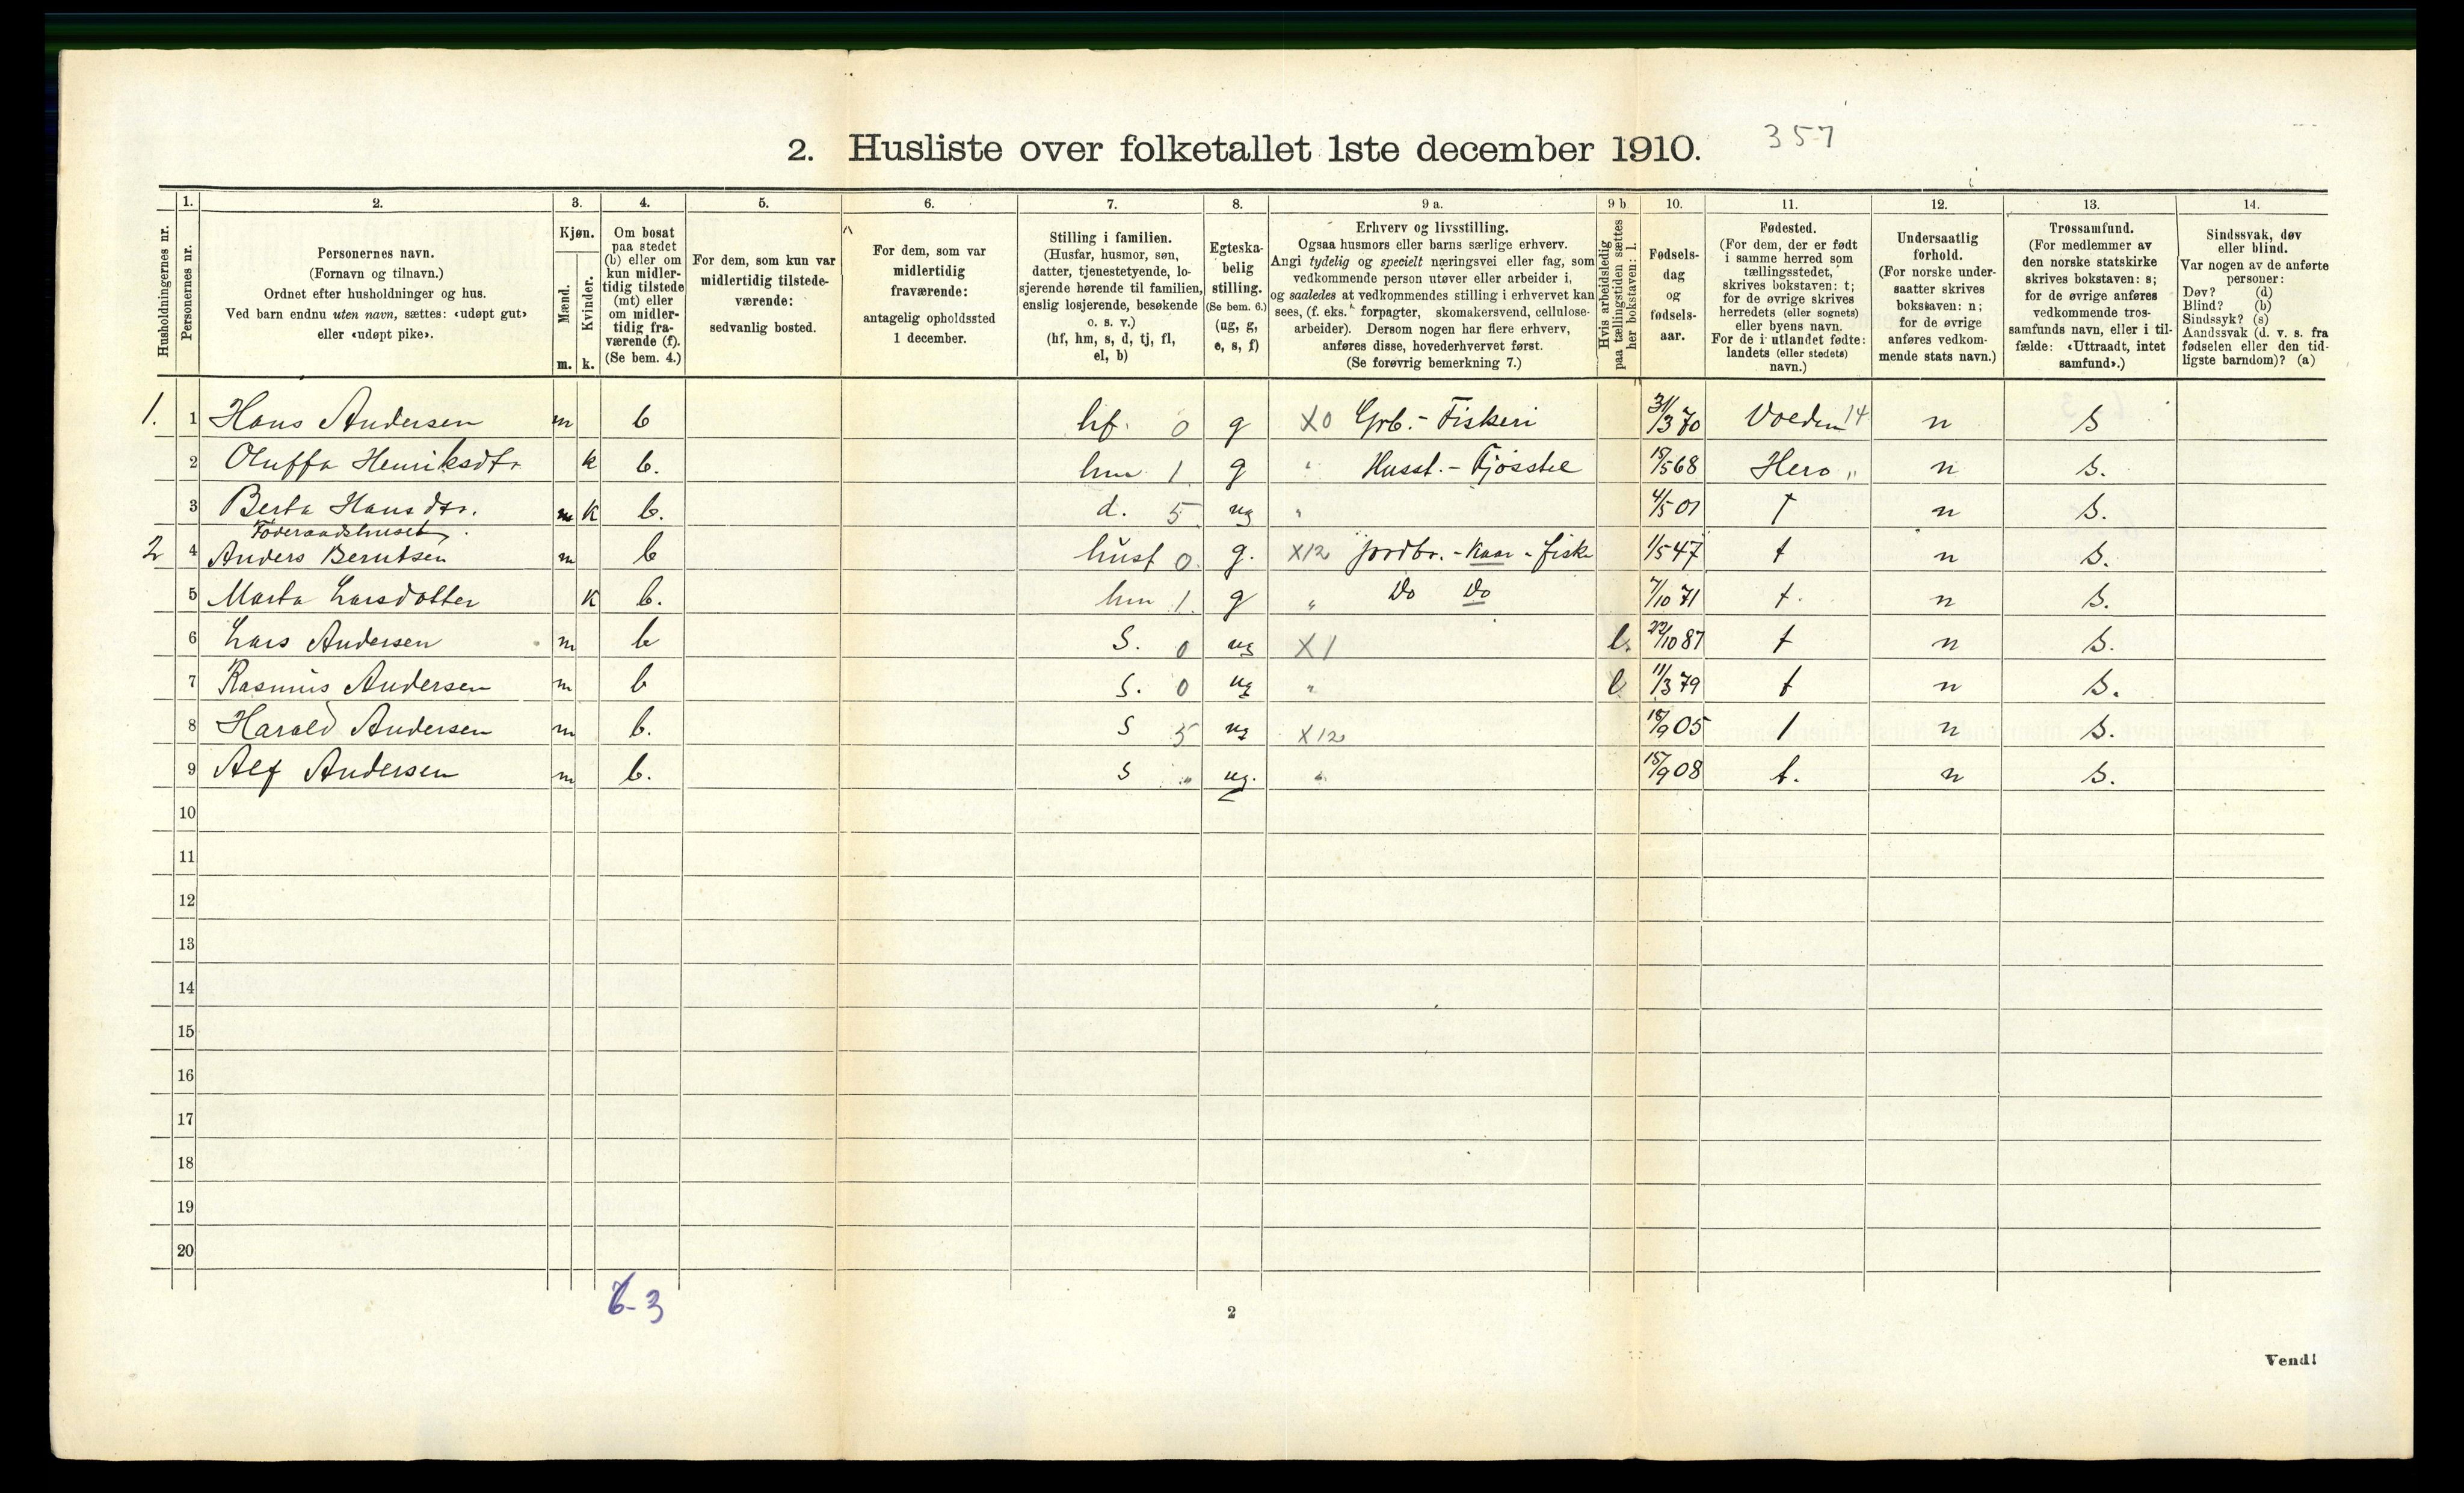 2. Husliste over folketallet 1ste december 1910. 357
1. 2. 3. 4. 5. 6. 7. 8. 9 a. 9 b. 10. 11. 12. 13. 14.
Husholdningernes nr.
Personernes nr.
Personernes navn.
(Fornavn og tilnavn.)
Ordnet efter husholdninger og hus.
Ved barn endnu uten navn, sættes: «udøpt gut»
eller «udøpt pike».
Kjøn.
Mænd.
Kvinder.
m. k.
Om bosat
paa stedet
(b) eller om
kun midler-
tidig tilstede
(mt) eller
om midler-
tidig fra-
værende (f).
(Se bem. 4.)
For dem, som kun var
midlertidig tilstede-
værende:
sedvanlig bosted.
For dem, som var
midlertidig
fraværende:
antagelig opholdssted
1 december.
Stilling i familien.
(Husfar, husmor, søn,
datter, tjenestetyende, lo-
sjerende hørende til familien,
enslig losjerende, besøkende
o. s. v.)
(hf, hm, s, d, tj, fl,
el, b)
Egteska-
belig
stilling.
(Se bem. 6.)
(ug, g,
e, s, f)
Erhverv og livsstilling.
Ogsaa husmors eller barns særlige erhverv.
Angi tydelig og specielt næringsvei eller fag, som
vedkommende person utøver eller arbeider i,
og saaledes at vedkommendes stilling i erhvervet kan
sees, (f. eks. forpagter, skomakersvend, cellulose-
arbeider). Dersom nogen har flere erhverv,
anføres disse, hovederhvervet først.
(Se forøvrig bemerkning 7.)
Hvis arbeidsledig
paa tællingstiden sættes
her bokstaven: l.
Fødsels-
dag
og
fødsels-
aar.
Fødested.
(For dem, der er født
i samme herred som
tællingsstedet,
skrives bokstaven: t;
for de øvrige skrives
herredets (eller sognets)
eller byens navn.
For de i utlandet fødte:
landets (eller stedets)
navn.)
Undersaatlig
forhold.
(For norske under-
saatter skrives
bokstaven: n;
for de øvrige
anføres vedkom-
mende stats navn.)
Trossamfund.
(For medlemmer av
den norske statskirke
skrives bokstaven: s;
for de øvrige anføres
vedkommende tros-
samfunds navn, eller i til-
fælde: «Uttraadt, intet
samfund».)
Sindssvak, døv
eller blind.
Var nogen av de anførte
personer:
Døv? (d)
Blind? (b)
Sindssyk? (s)
Aandssvak (d. v. s. fra
fødselen eller den tid-
ligste barndom)? (a)
1. 1 Hans Andersen m b hf. 0 g X0 Grb. - Fiskeri 31/3 70 Voeden 14 n S
2 Oluffa Henriksdtr k b. hm 1 g " Husst. - Fjösstel 15/5 68 Herø " n S.
3 Berta Hansdtr. k b. d. 5 ug " 4/5 01 t n S.
Föderaadshuset
2 4 Anders Berntsen m b husf 0 g. X12 jordbr. - Kaar - fisk 1/5 47 t n S.
5 Marta Larsdatter k b. hm 1. g " Do Do 7/10 71 t. n S.
6 Lars Andersen m b S. 0 ug X1 l. 22/10 87 t n S.
7 Rasmus Andersen m b S. 0 ug " l 11/3 79 t n S.
8 Harald Andersen m b. S 5 ug X12 18/9 05 t n S.
9 Alf Andersen m b. S " ug. " 15/9 08 t. n S.
10
11
12
13
14
15
16
17
18
19
20
6-3
2
Vend!